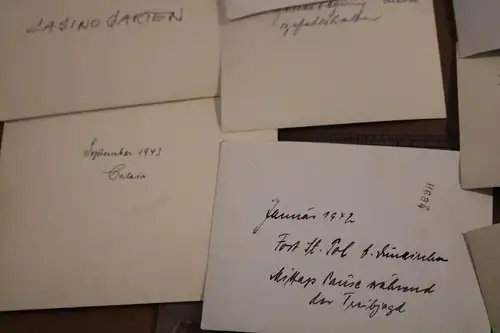 CASINOGARTEN
September 1943
Calais
Januar 1942
Fort St. Pol b. Dünkirchen
Mittags Pause während
der Treibjagd